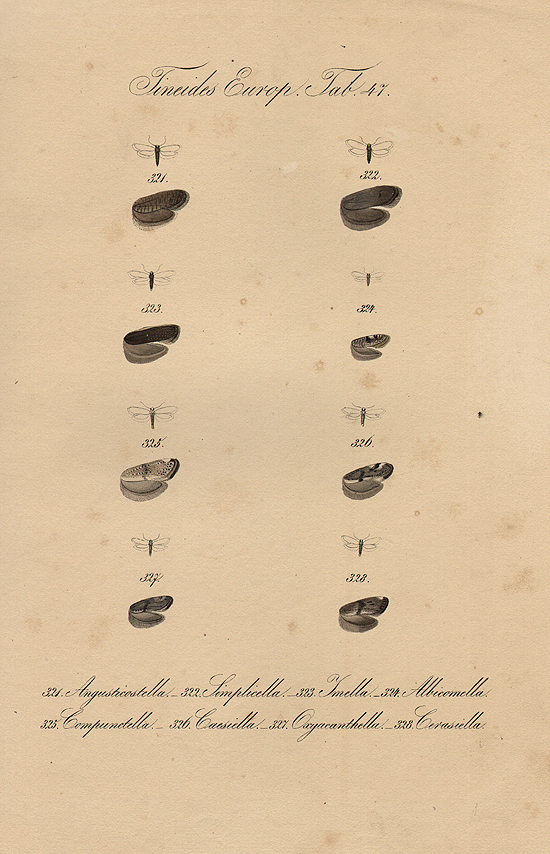 Tineides Europ. Tab. 47.
321. 322.
323. 324.
325. 326.
327. 328.
321. Angusticostella._322. Simplicella._323. Imella._324. Albicomella.
325. Compunctella._ 326. Caesiella._327. Oxyacanthella._328. Cerasiella.